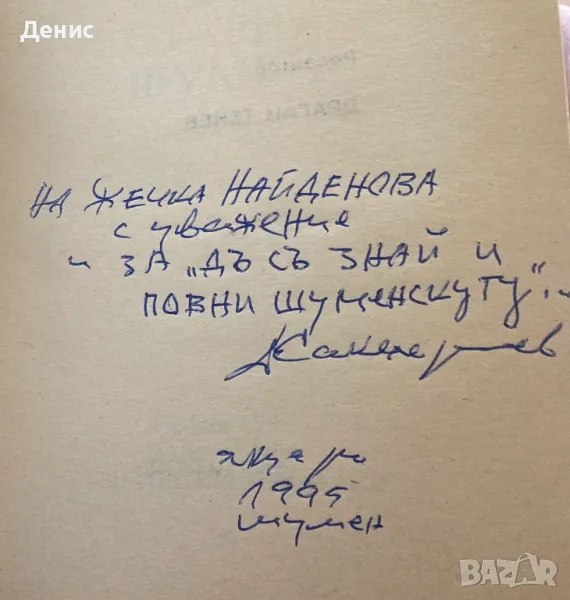 Денис
НА ЖЕЧКА НАЙДЕНОВА
с уважение
и ЗА „ДЪ СЪ ЗНАЙ И
ПОВНИ ШУМЕНСКУТУ“...
януари
1995
Шумен
BAZAR